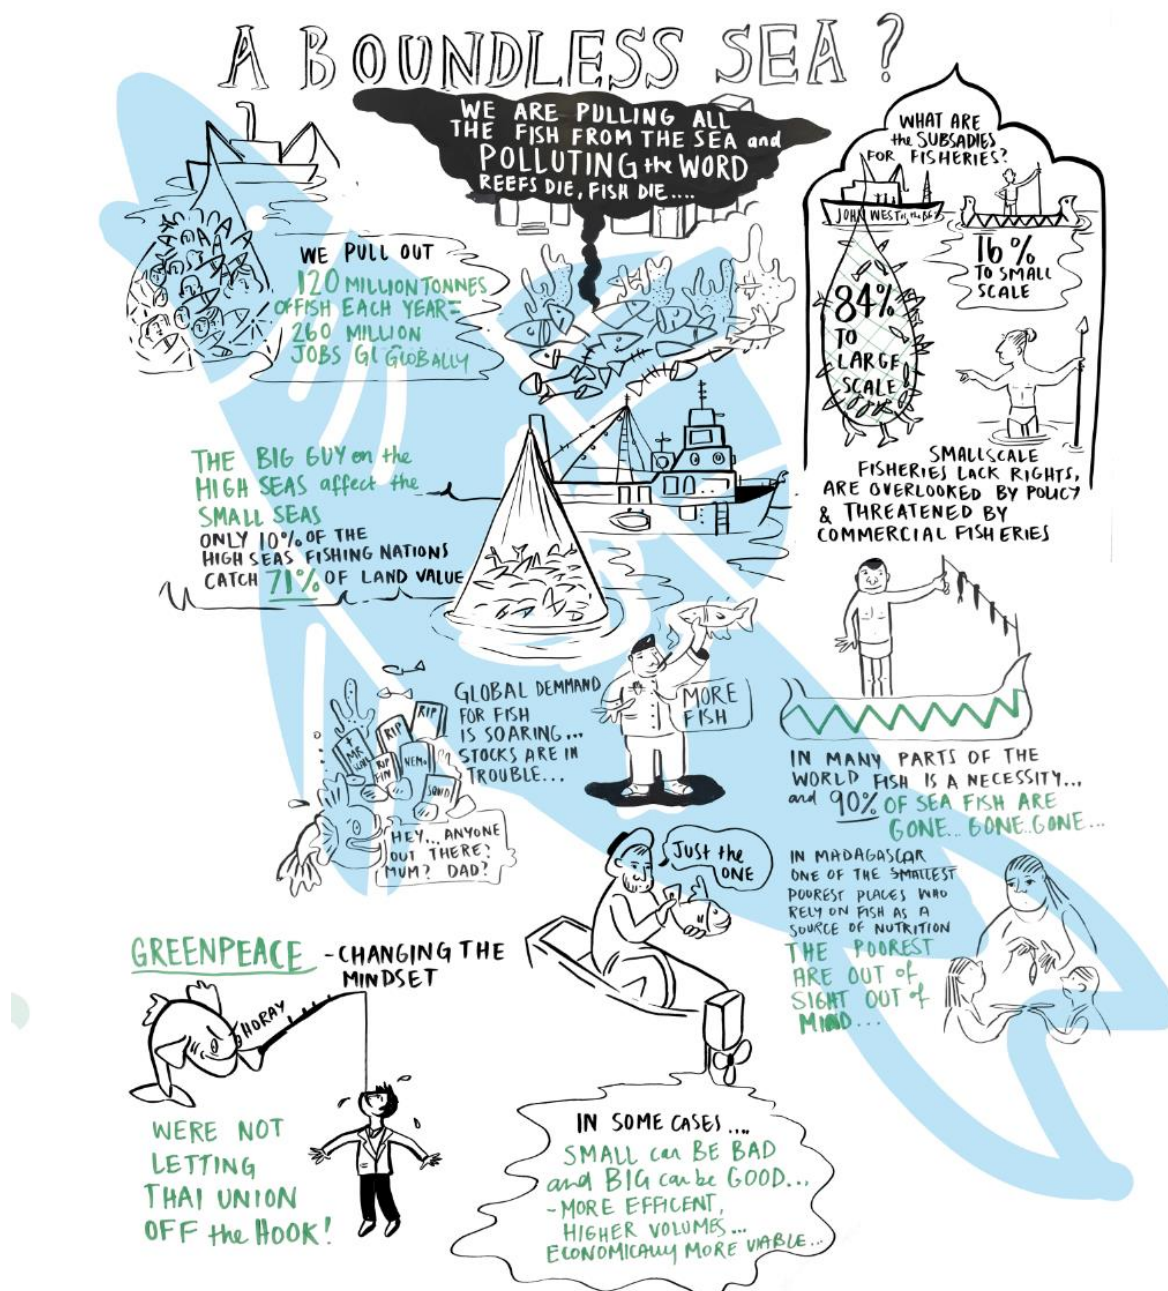 A BOUNDLESS SEA?
WE ARE PULLING ALL
THE FISH FROM THE SEA and
POLLUTING the WORD
REEFS DIE, FISH DIE....
WHAT ARE
the SUBSADIES
FOR FISHERIES?
JOHN WEST
16%
TO SMALL
SCALE
84%
TO
LARGE
SCALE
SMALLSCALE
FISHERIES LACK RIGHTS,
ARE OVERLOOKED BY POLICY
& THREATENED BY
COMMERCIAL FISHERIES
WE PULL OUT
120 MILLION TONNES
OF FISH EACH YEAR =
260 MILLION
JOBS GL GLOBALLY
THE BIG GUY on the
HIGH SEAS affect the
SMALL SEAS
ONLY 10% OF THE
HIGH SEAS FISHING NATIONS
CATCH 71% OF LAND VALUE
GLOBAL DEMMAND
FOR FISH
IS SOARING...
STOCKS ARE IN
TROUBLE...
MORE
FISH
RIP
RIP
MR
RIP
FIN
NEMO
SQUID
HEY... ANYONE
OUT THERE?
MUM? DAD?
IN MANY PARTS OF THE
WORLD FISH IS A NECESSITY...
and 90% OF SEA FISH ARE
GONE... GONE..GONE...
JUST the
ONE
IN MADAGASCAR
ONE OF THE SMALLEST
POOREST PLACES WHO
RELY ON FISH AS A
SOURCE OF NUTRITION
THE POOREST
ARE OUT of
SIGHT OUT of
MIND...
GREENPEACE - CHANGING THE
MINDSET
HORAY
WERE NOT
LETTING
THAI UNION
OFF the HOOK!
IN SOME CASES....
SMALL can BE BAD
and BIG can be GOOD...
- MORE EFFICENT,
HIGHER VOLUMES...
ECONOMICALLY MORE VIABLE...